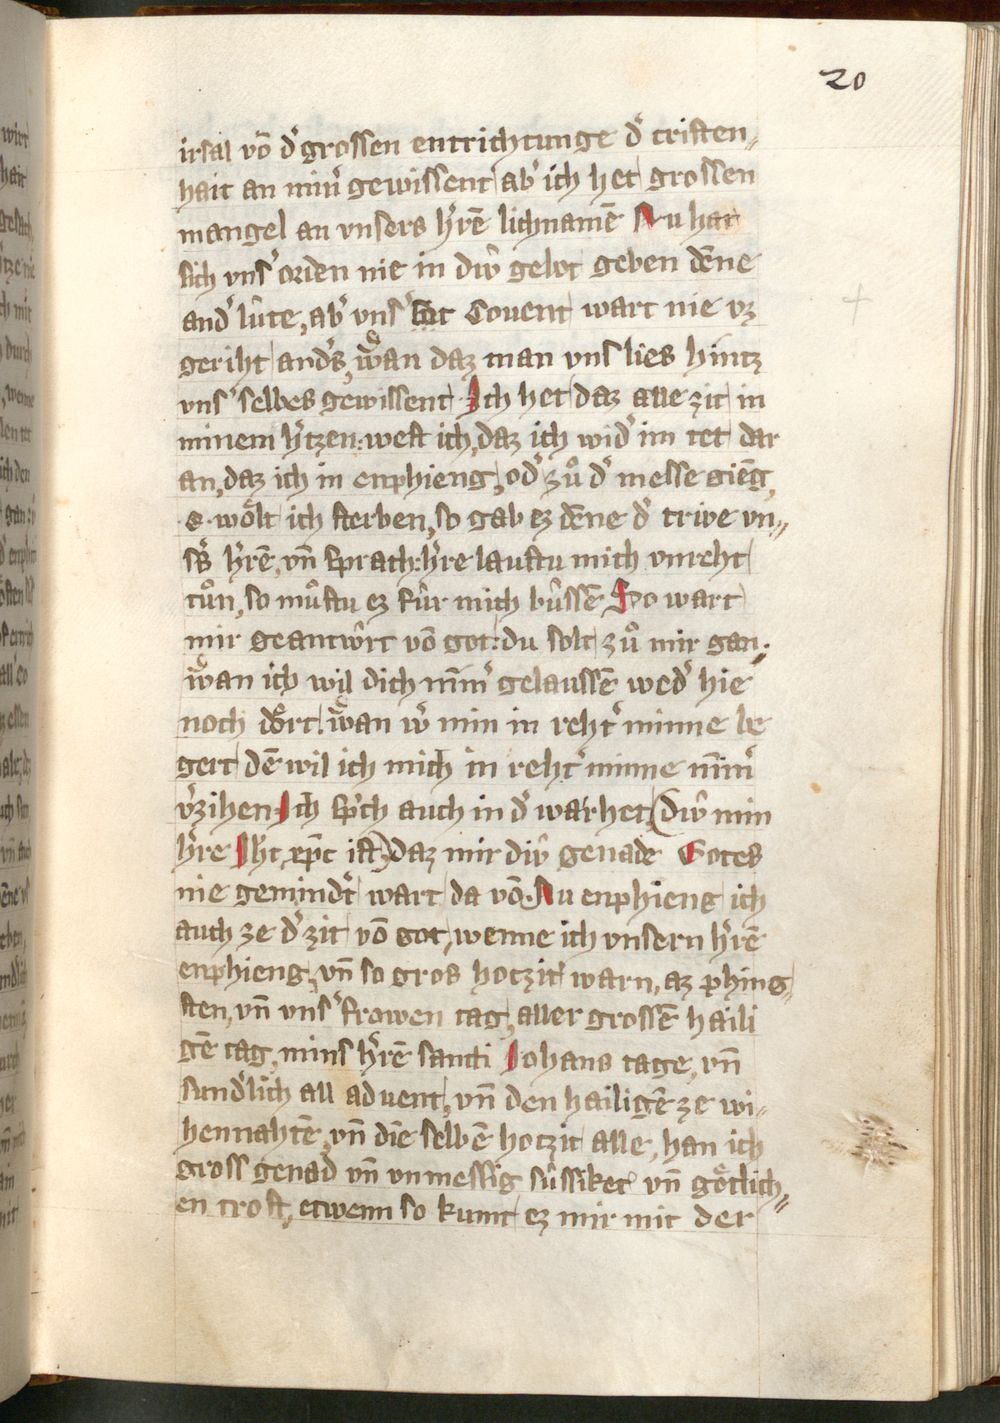 20
irsal võ d͛ grossen entrichtunge d͛ cristen,
hait an min͛ gewissent ab͛ ich het grossen
mangel an vnsers h͛rē lichnamē Nu hat
sich vns͛ orden nie in diŵ gelot geben dēne
and͛ lûte, ab͛ vns͛ Couent wart nie vz
geriht and͛s, wan daz man vns lies hintz
vns͛ selbes gewissent. Ich het daz alle zit in
minem h͛tzen: west ich, daz ich wid͛ im tet dar
an, daz ich in enphieng, od͛ zů d͛ messe giēg,
.e. wo̊lt ich sterben, so gab ez dēne d͛ triwe vn⸗
s͛s h͛rē, vn̄ sprach: h͛re laustu mich vnreht
tůn, so můstu ez fûr mich bûssē So wart
mir geantwûrt võ got: du solt zů mir gan.
wan ich wil dich nīm͛ gelaussē wed͛ hie
noch dort. wan w͛ min in reht͛ minne be
gert dē wil ich mich in reht͛ minne nīm͛
v͛zihen. Ich sp͛ch auch in d͛ warhet (diŵ min
h͛re Jhc xp̄c ist) daz mir diŵ genade Gotes
nie gemind͛t wart da võ. Nu enphieng ich
auch ze d͛ zit võ got, wenne ich vnsern h͛rē
enphieng, vn̄ so gros hotzit warn, az phing⸗
sten, vn̄ vns͛ frowen tag, aller grossē haili
gē tag, mins h͛rē sancti Johans tage, vn̄
sund͛lich all aduent, vn̄ den hailigē ze wi⸗
hennahtē, vn̄ die selbē hotzit alle, han ich
gross genad vn̄ vnmessig sûssiket vn̄ gôtlich⸗
en trost, etwenn so kumt ez mir mit der